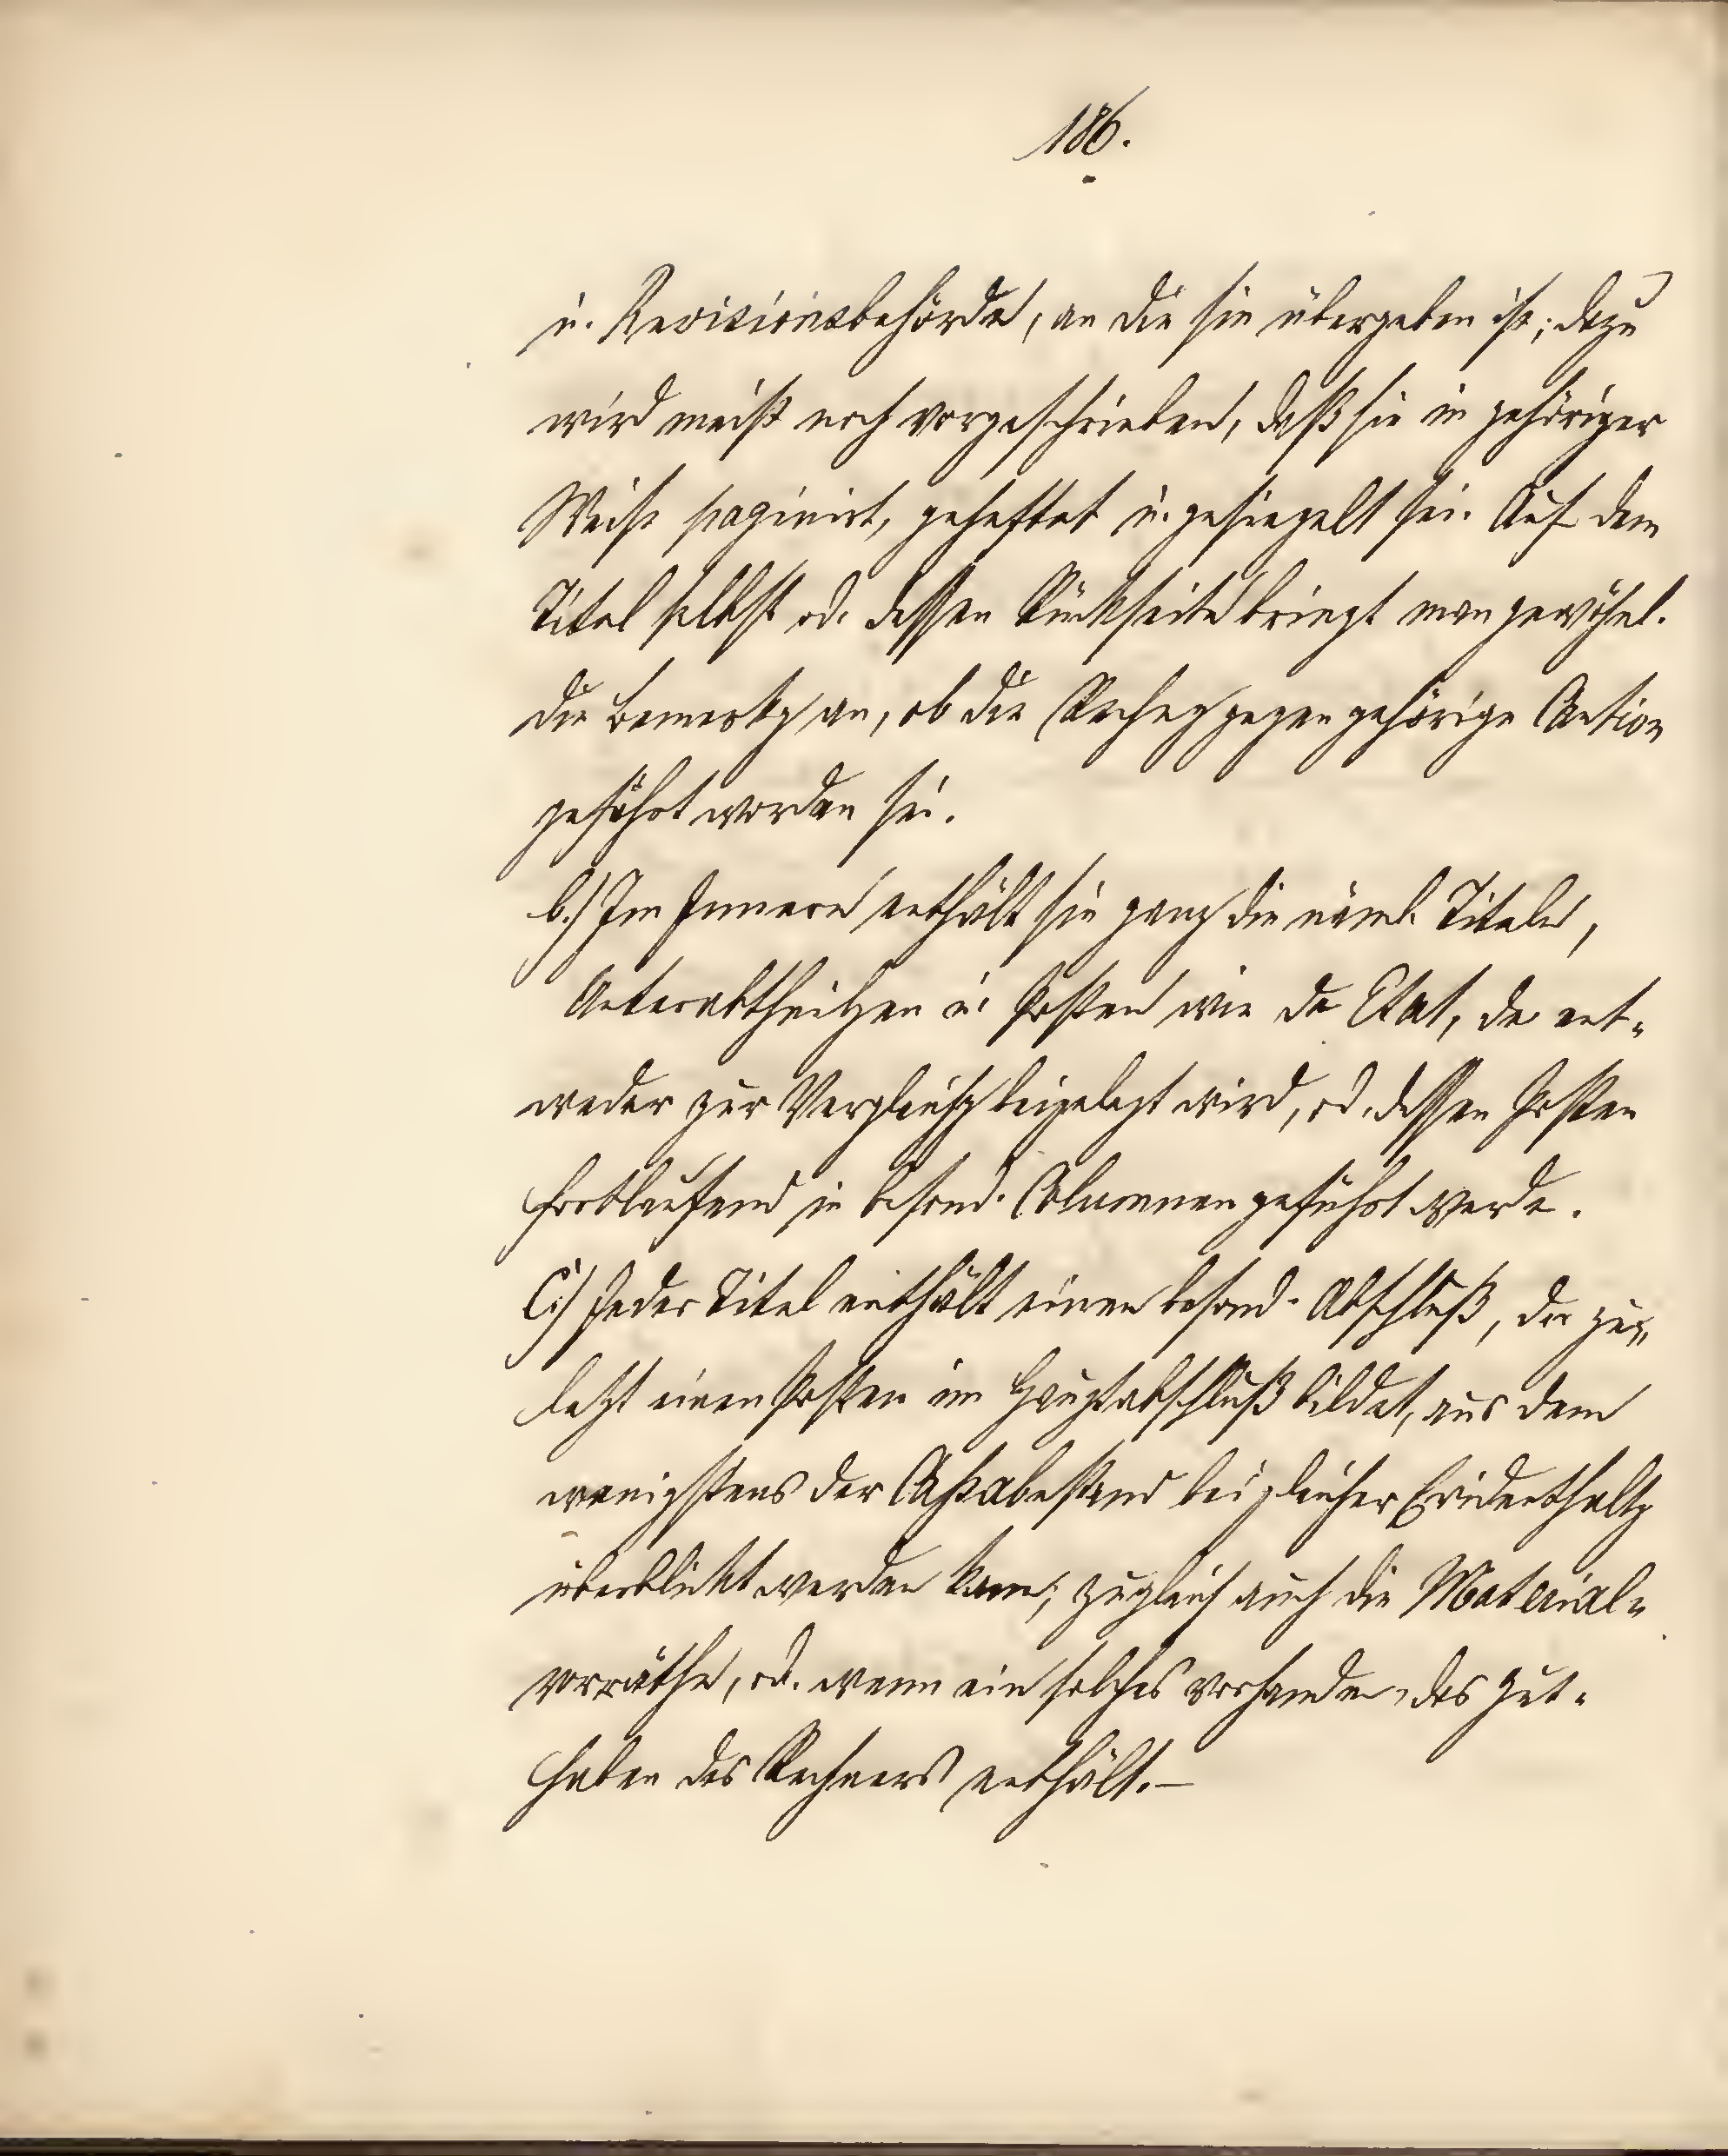 186.
u. Revisionsbehörde, an die sie übergeben ist; dazu
wird meist noch vorgeschrieben, daß sie in gehöriger
Weise paginirt, geheftet u. gesiegelt sei. Auf dem
Titel selbst od. dessen Rückseite bringt man gewöhnl.
die Bemerkg an, ob die Rechng gegen gehörige Caution
geführt worden sei.
b.) Im Innern enthält sie ganz die näml. Titel,
Unterabtheilgen u. Posten wie der Etat, der ent-
weder zur Vergleichg beigelegt wird, od. dessen Posten
fortlaufend in besond. Columnen geführt werde.
C.) Jeder Titel enthält einen besond. Abschluß, der zu-
letzt einen Posten im Hauptabschluß bildet, aus dem
wenigstens der Cassabestand bei gleicher Evidenthaltg
überblickt werden kann; zugleich auch die Material-
vorräthe, od. wenn ein solches vorhanden, das Gut-
haben des Rechners enthält.—